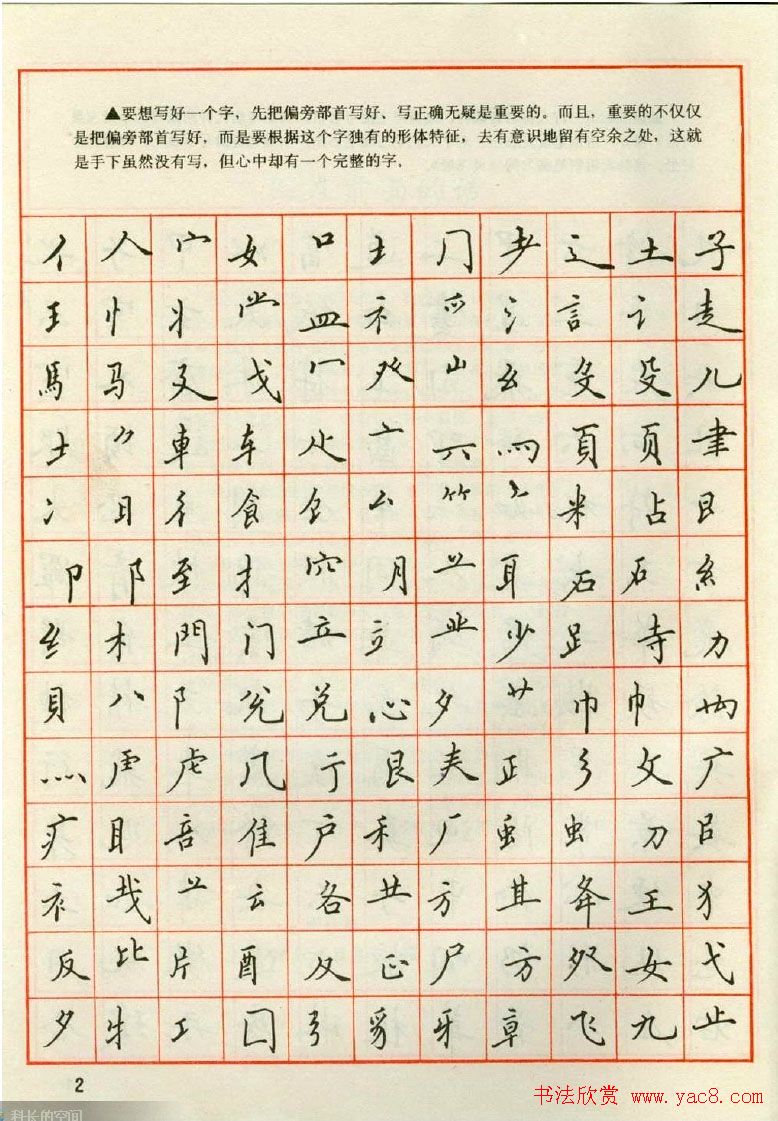 ▲要想写好一个字，先把偏旁部首写好、写正确无疑是重要的。而且，重要的不仅仅
是把偏旁部首写好，而是要根据这个字独有的形体特征，去有意识地留有空余之处，这就
是手下虽然没有写，但心中却有一个完整的字。
亻 人 宀 女 口 土 冂 耂 辶 土 子
王 忄 丬 龸 皿 礻 爫 氵 言 讠 走
馬 马 廴 戈 冖 癶 山 幺 殳 殳 儿
士 車 车 亠 六 罒 頁 页 聿
冫 日 彳 食 饣 厶 竹 米 占 日
卩 阝 至 扌 穴 月 䒑 耳 石 石 糹
纟 木 門 门 立 立 业 少 足 寺 力
貝 八 阝 兑 心 夕 艹 巾 巾
灬 虍 几 亍 艮 夫 正 彡 攵 广
疒 目 音 隹 户 禾 厂 虫 虫 刀 吕
衤 䒑 云 各 龷 方 其 夅 王 犭
反 比 片 酉 及 疋 尸 方 女 弋
夕 牜 工 囗 弓 豸 牙 章 飞 九 止
2
书法欣赏 www.yac8.com
科长的空间